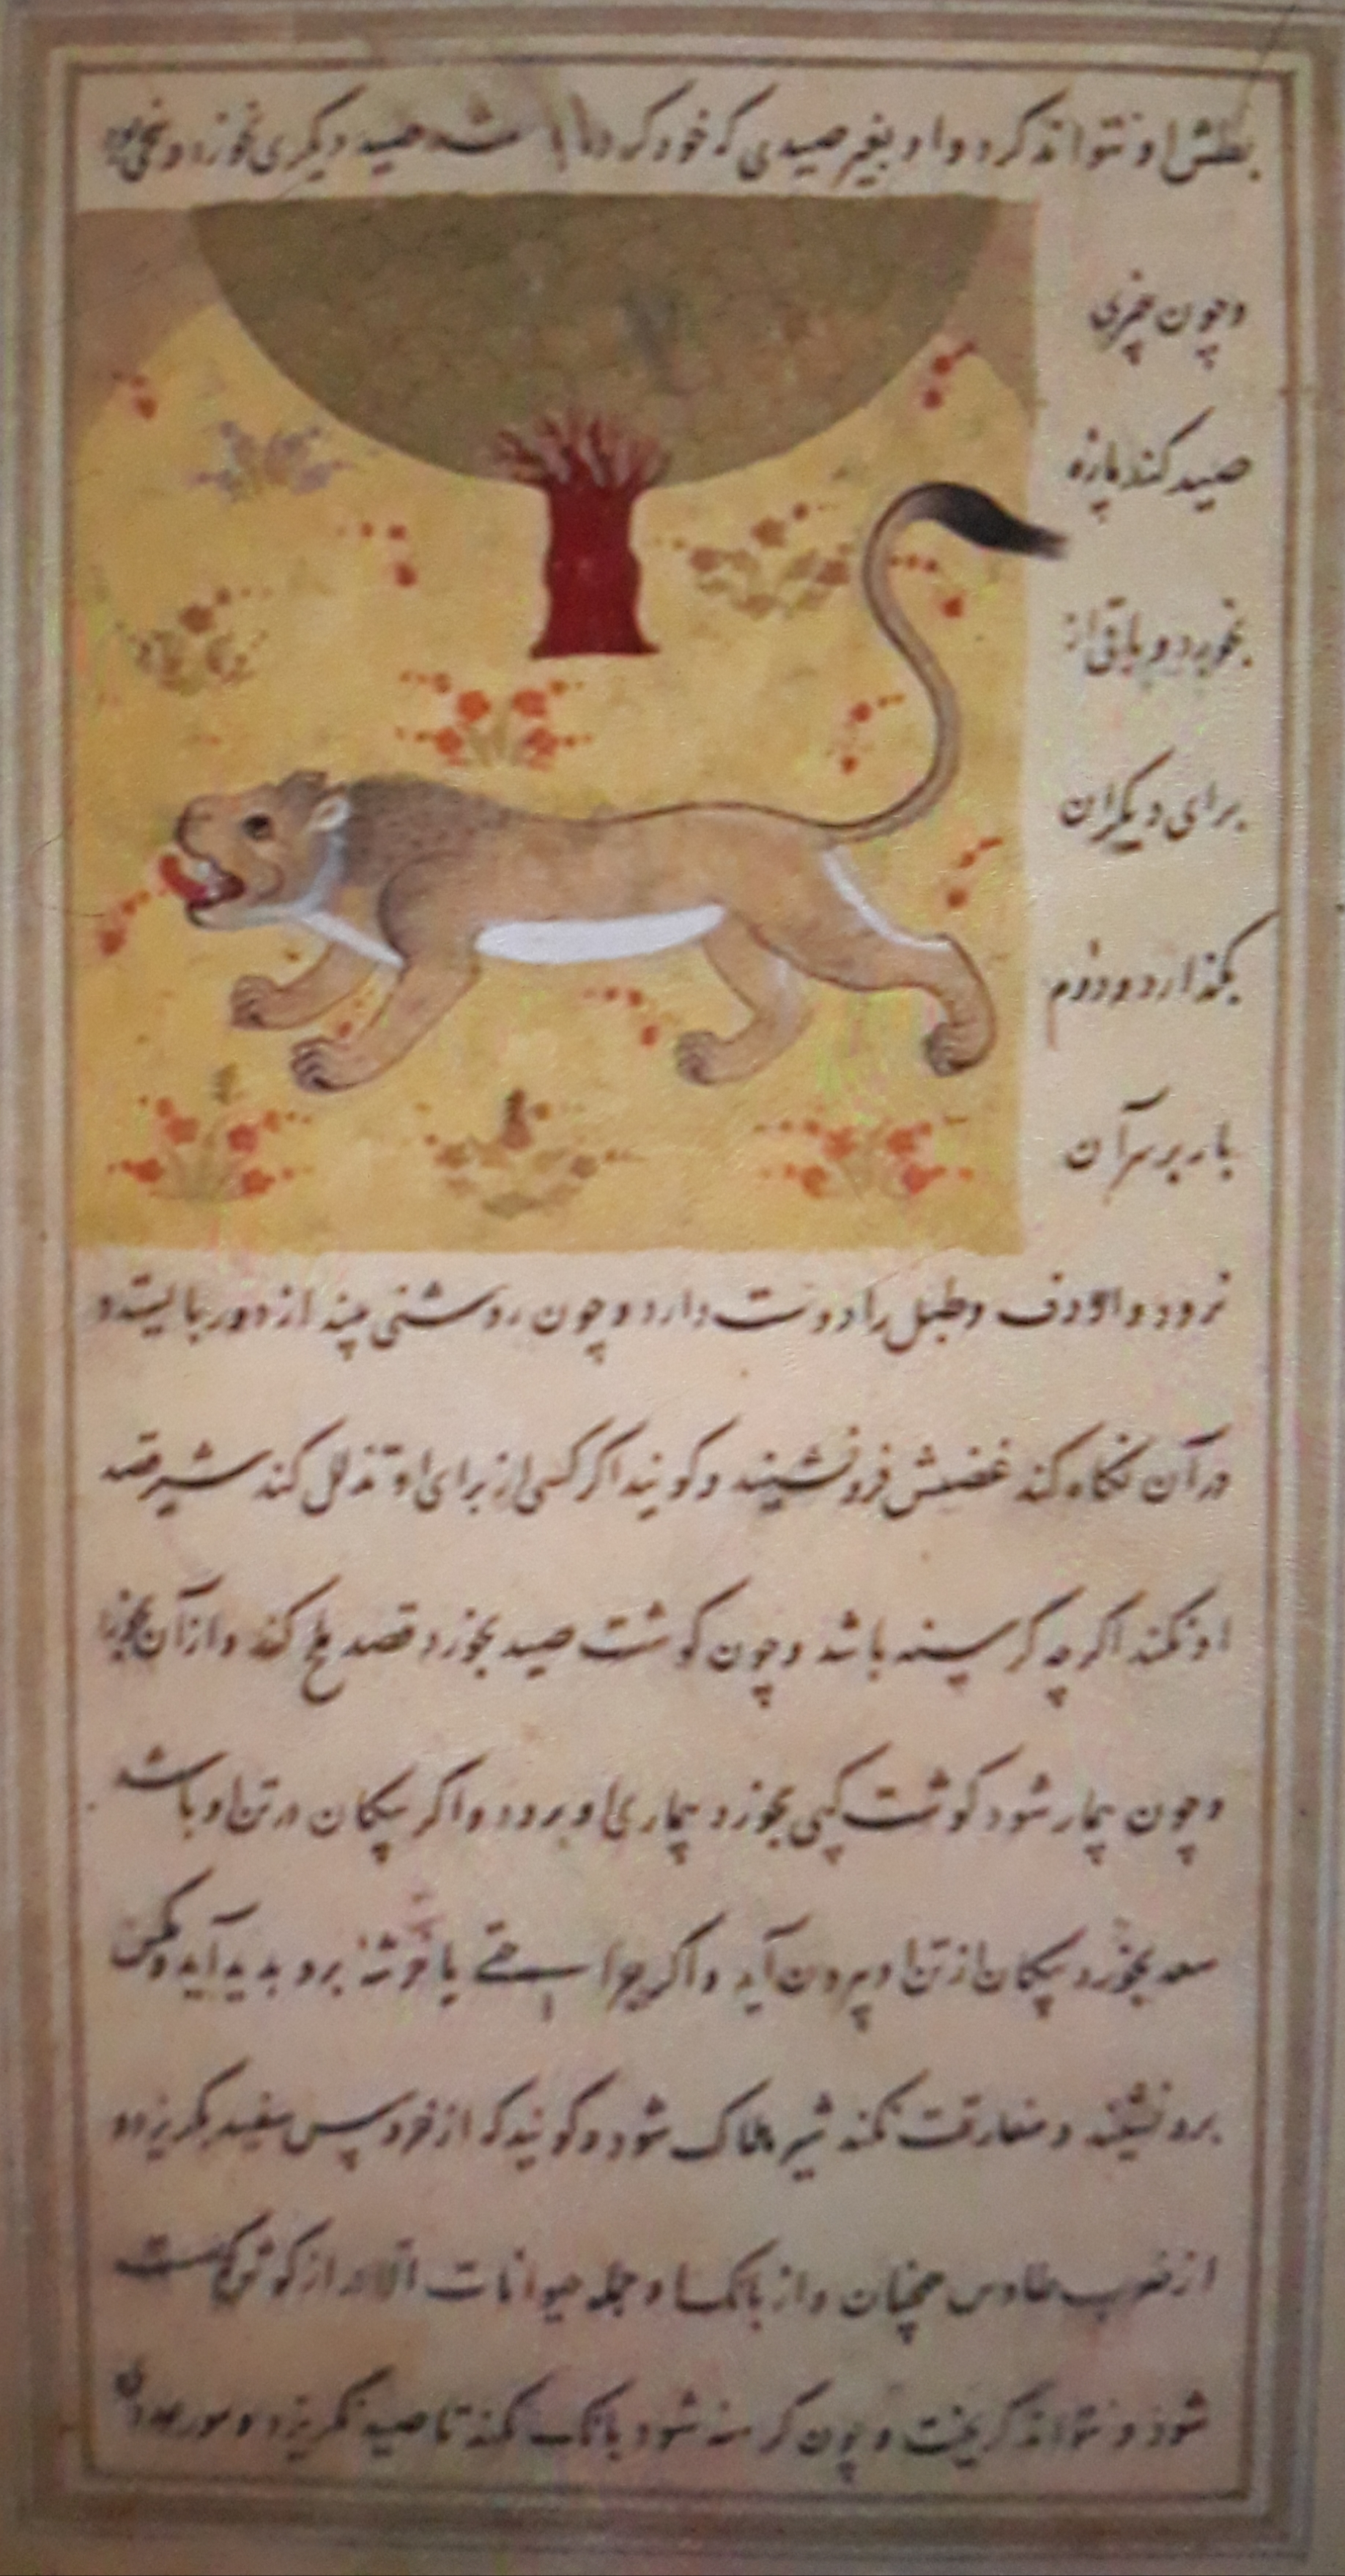 بطش او نتواند کرد و او بغیر صیدی که خود کرده باشد صید دیگری نخورد و
وچون چیزی
صید کند پاره
بخورد و باقی از
برای دیگران
بگذارد و دوم
بار بر سر آن
نرود و اواز دف وطبل را دوست دارد و چون روشنی بیند از دور بایستد و
در آن نگاه کند غضبش فرو نشیند و کویند اکر کسی از برای او تذلل کند شیر قصد
او نکند اکر چه کرسنه باشد و چون کوشت صید بخورد قصد ملح کند و از آن بخورد
و چون بیمار شود کوشت کپی بخورد بیماری او برود و اکر پیکان در تن او باشد
سعد بخورد پیکان از تن او بیرون آید و اکر جراحتی یا خرشه برو بدید آید و مکس
برو نشیند و مفارقت نکند شیر هلاک شود و کویند که از خروس سفید بکریزد و
از ضرب طاوس همچنان و از بانک و جمله حیوانات از کوشش سست
شود و نتواند کریخت و چون کرسنه شود بانک نکند تا صید نکریزد و